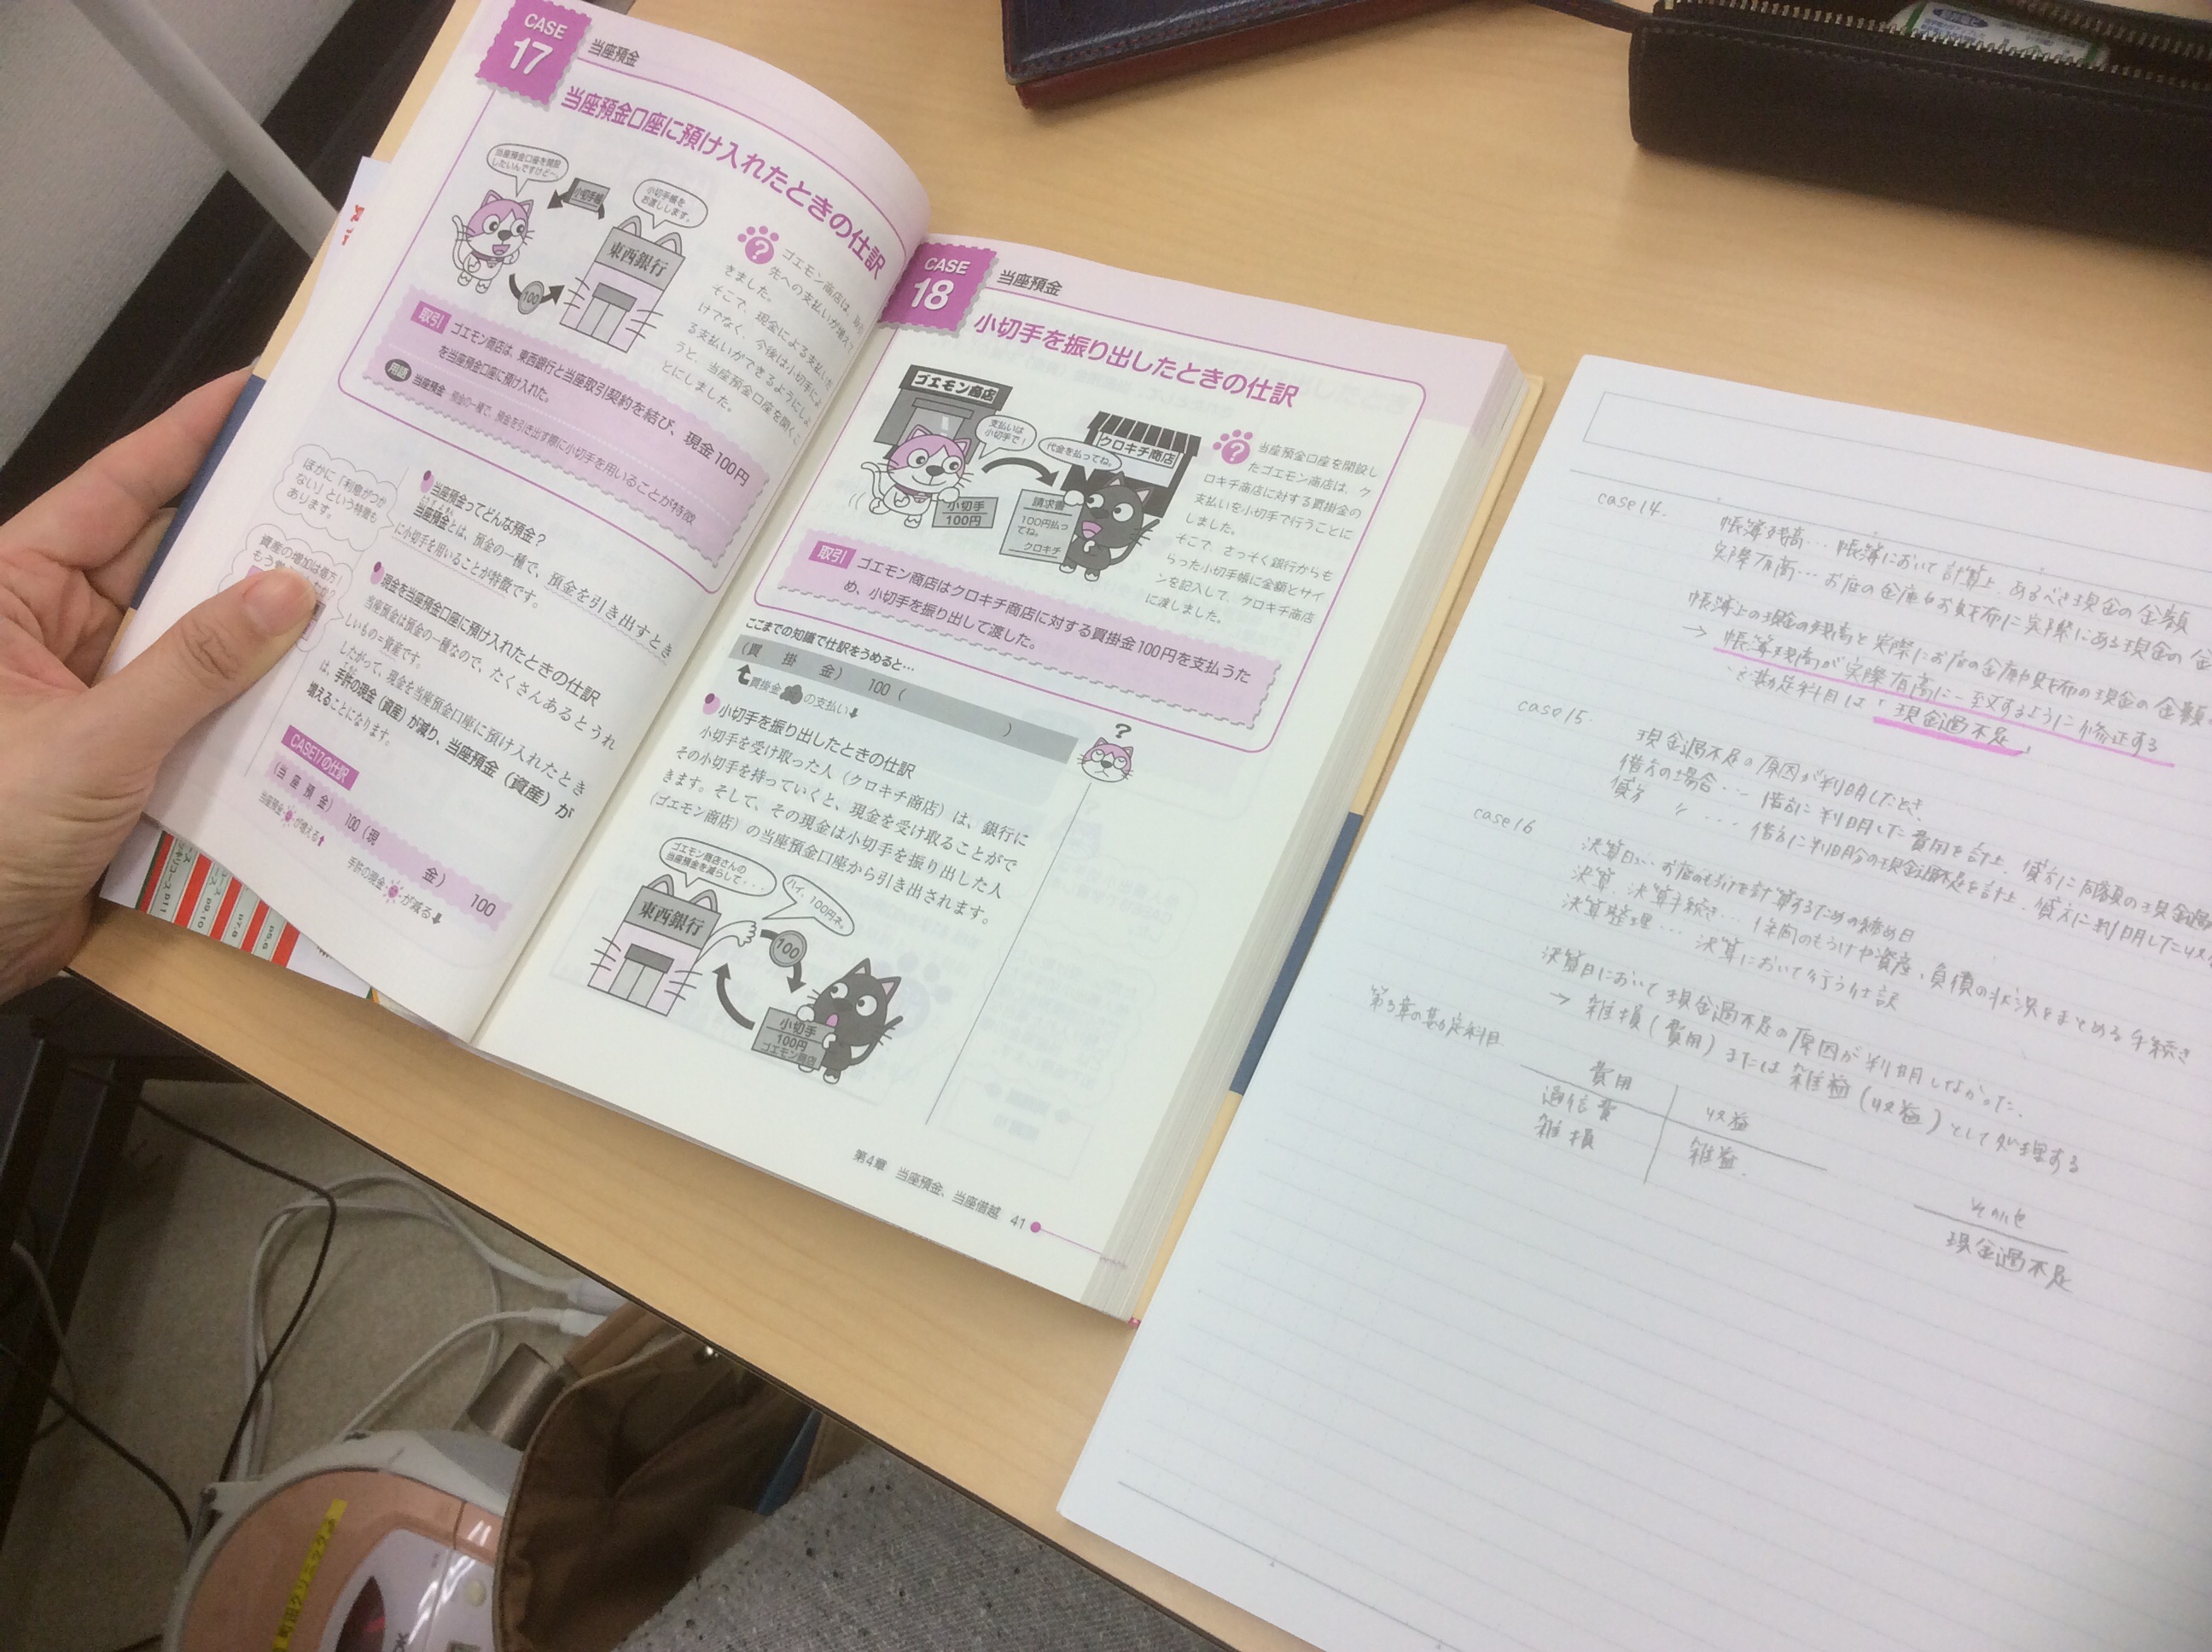 CASE
17
当座預金
当座預金口座に預け入れたときの仕訳
当座預金口座を開設
したいんですけど〜。
小切手帳
小切手帳を
お渡しします。
東西銀行
100
ゴエモン商店は、
先への支払いが増えて
きました。
そこで、現金による支払いだ
けでなく、今後は小切手によ
る支払いができるようにしよ
うと、当座預金口座を開くこ
とにしました。
取引 ゴエモン商店は、東西銀行と当座取引契約を結び、現金100円
を当座預金口座に預け入れた。
用語 当座預金 預金の一種で、預金を引き出す際に小切手を用いることが特徴
ほかに「利息がつか
ない」という特徴も
あります。
資産の増加は借方!
もう
当座預金ってどんな預金?
当座預金とは、預金の一種で、預金を引き出すとき
に小切手を用いることが特徴です。
現金を当座預金口座に預け入れたときの仕訳
当座預金は預金の一種なので、たくさんあるとうれ
しいもの=資産です。
したがって、現金を当座預金口座に預け入れたとき
は、手許の現金(資産)が減り、当座預金(資産)が
増えることになります。
CASE17の仕訳
(当座預金) 100 (現 金) 100
当座預金 が増える↑
手許の現金 が減る↓
CASE
18
当座預金
小切手を振り出したときの仕訳
ゴエモン商店
支払いは
小切手で!
代金を払ってね。
クロキチ商店
小切手
100円
請求書
100円払っ
てね。
クロキチ
当座預金口座を開設し
たゴエモン商店は、ク
ロキチ商店に対する買掛金の
支払いを小切手で行うことに
しました。
そこで、さっそく銀行からも
らった小切手帳に金額とサイ
ンを記入して、クロキチ商店
に渡しました。
取引 ゴエモン商店はクロキチ商店に対する買掛金100円を支払うた
め、小切手を振り出して渡した。
ここまでの知識で仕訳をうめると…
(買掛金) 100 ( )
買掛金 の支払い↓
?
小切手を振り出したときの仕訳
小切手を受け取った人(クロキチ商店)は、銀行に
その小切手を持っていくと、現金を受け取ることがで
きます。そして、その現金は小切手を振り出した人
(ゴエモン商店)の当座預金口座から引き出されます。
ゴエモン商店さんの
当座預金を減らして・・・
ハイ、100円ネ。
東西銀行
100
小切手
100円
ゴエモン商店
第4章 当座預金、当座借越 41
case14.
帳簿残高… 帳簿において計算上、あるべき現金の金額
実際有高… お店の金庫やお財布に実際にある現金の金
帳簿上の現金の残高と実際にお店の金庫や財布の現金の金額
→ 帳簿残高が実際有高に一致するように修正する
勘定科目は「現金過不足」
case15.
現金過不足の原因が判明したとき.
借方の場合… 借方に判明した費用を計上、貸方に同額の現金過
貸方 〃 … 借方に判明分の現金過不足を計上、貸方に判明した収
case16
決算日… お店のもうけを計算するための締め日
決算、決算手続き… 1年間のもうけや資産、負債の状況をまとめる手続き
決算整理… 決算において行う仕訳
決算日において現金過不足の原因が判明しなかった.
→ 雑損(費用)または雑益(収益)として処理する
第3章の勘定科目
費用
通信費
雑損
収益
雑益.
その他
現金過不足
p5,6
p7,8
p9,10
p11